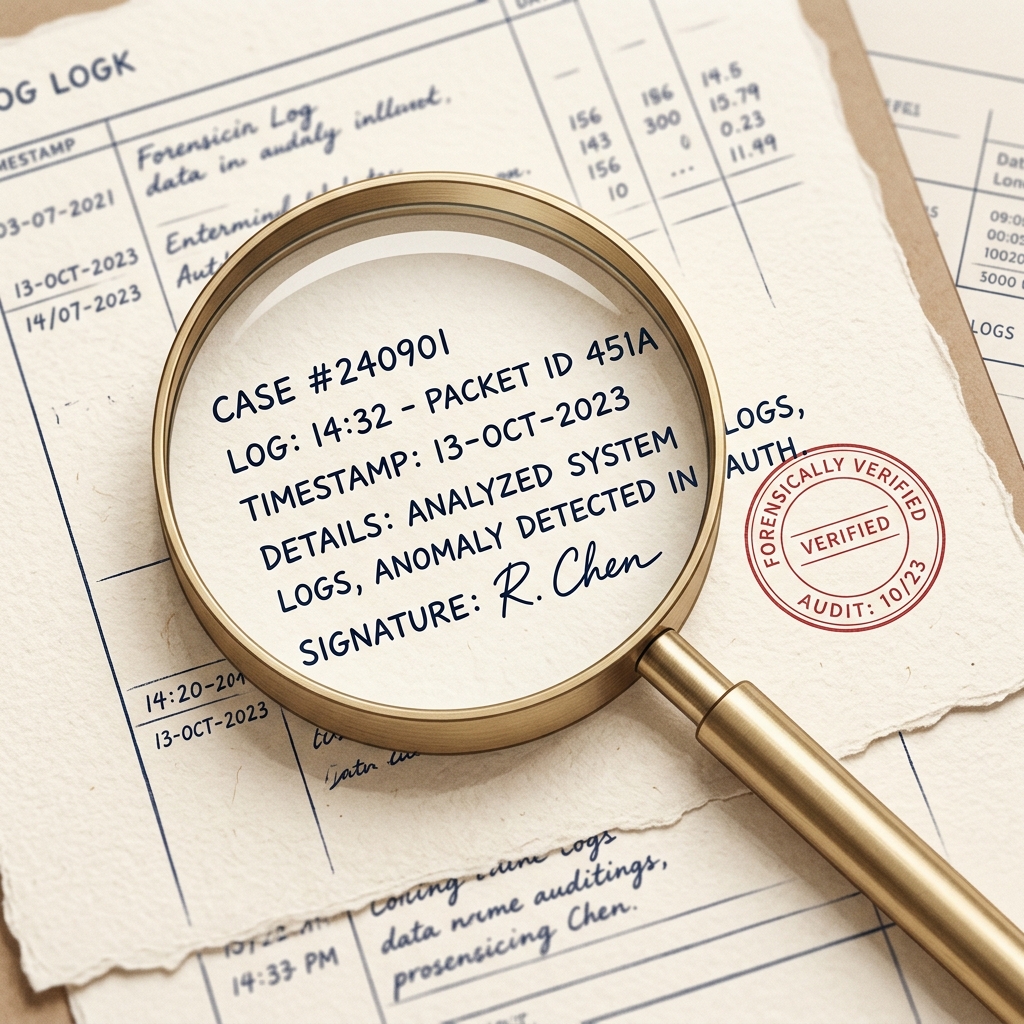 OG LOGK
MESTAMP
Forensicin Log
data in audaly inlluot.
03-07-2021
13-OCT-2023
14/07-2023
156
143
156
10
186
300
0
...
14.5
15.79
0.23
11.99
CASE #240901
LOG: 14:32 - PACKET ID 451A
TIMESTAMP: 13-OCT-2023
DETAILS: ANALYZED SYSTEM LOGS,
LOGS, ANOMALY DETECTED IN AUTH.
SIGNATURE: R. Chen
FORENSICALLY VERIFIED
VERIFIED
AUDIT: 10/23
14:20-201
13-OCT-2023
logs
data nrme auditings,
prosensicing Chen.
14:33 PM
Dat
Lon
09:0
00:05
10020
5000
LOGS